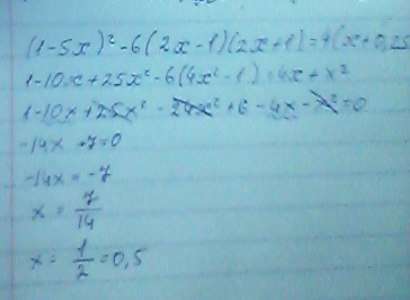 (1-5x)²-6(2x-1)(2x+1)=4(x+0,25
1-10x+25x²-6(4x²-1)=4x+x²
1-10x+25x²-24x²+6-4x-x²=0
-14x+7=0
-14x=-7
x=7/14
x=1/2=0,5